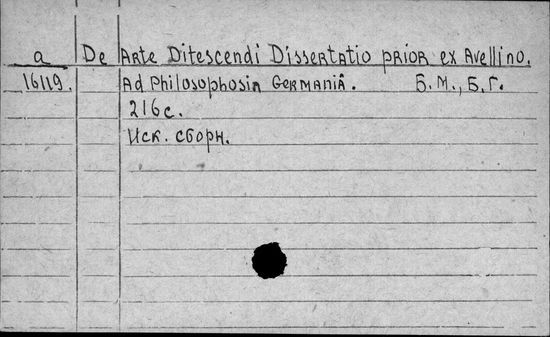 а De Arte Ditescendi Dissertatio prior ex Avellino.
16119. Ad Philosophosin Germaniâ. Б.М., Б.Г.
216с.
Иск. сборн.